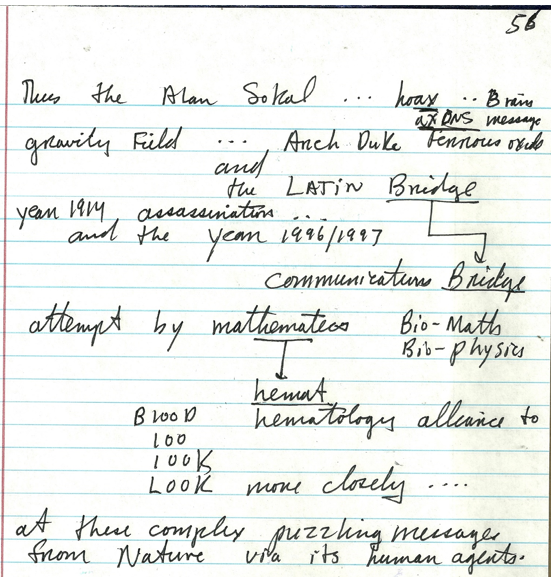 56
Thus the Alan Sokal ... hoax .. Brain
axons message
gravity Field ... Arch Duke Ferrious oxide
and
the LATIN Bridge
year 1914 assassination ...
and the year 1996/1997
communications Bridge
attempt by mathematics Bio-Math
Bio-physics
hemat
BlooD hematology alliance to
100
100K
LOOK more closely ....
at these complex puzzling messages
from Nature via its human agents.